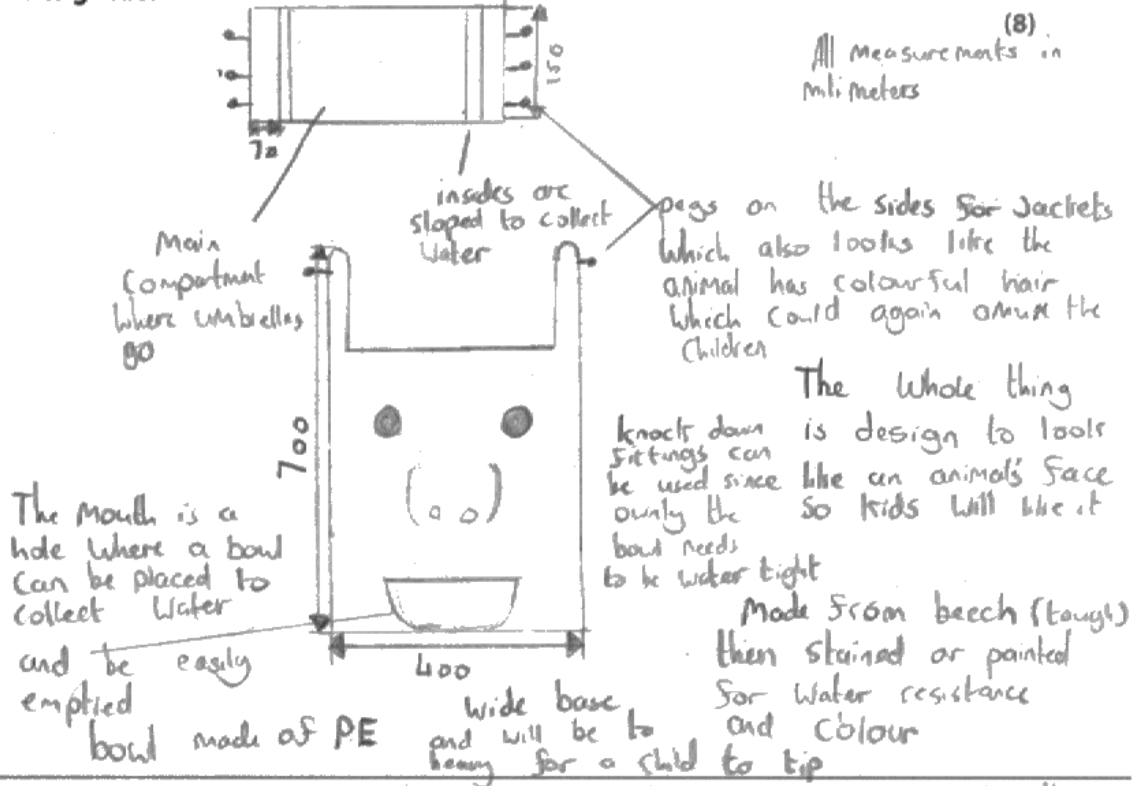 (8)
All measurements in
mlimeters
150
70
insides are
sloped to collect
water
Main
Compartment
where umbrellas
go
pegs on the sides for Jackets
which also looks like the
animal has colourful hair
which could again amuse the
children
700
The whole thing
is design to look
like an animals face
so kids will like it
knock down
fittings can
be used since
ownly the
bowl needs
to be water tight
The Mouth is a
hole where a bowl
can be placed to
collect water
and be easily
emptied
bowl made of PE
400
wide base
and will be to
heavy for a child to tip
Made from beech (tough)
then stained or painted
for water resistance
and colour